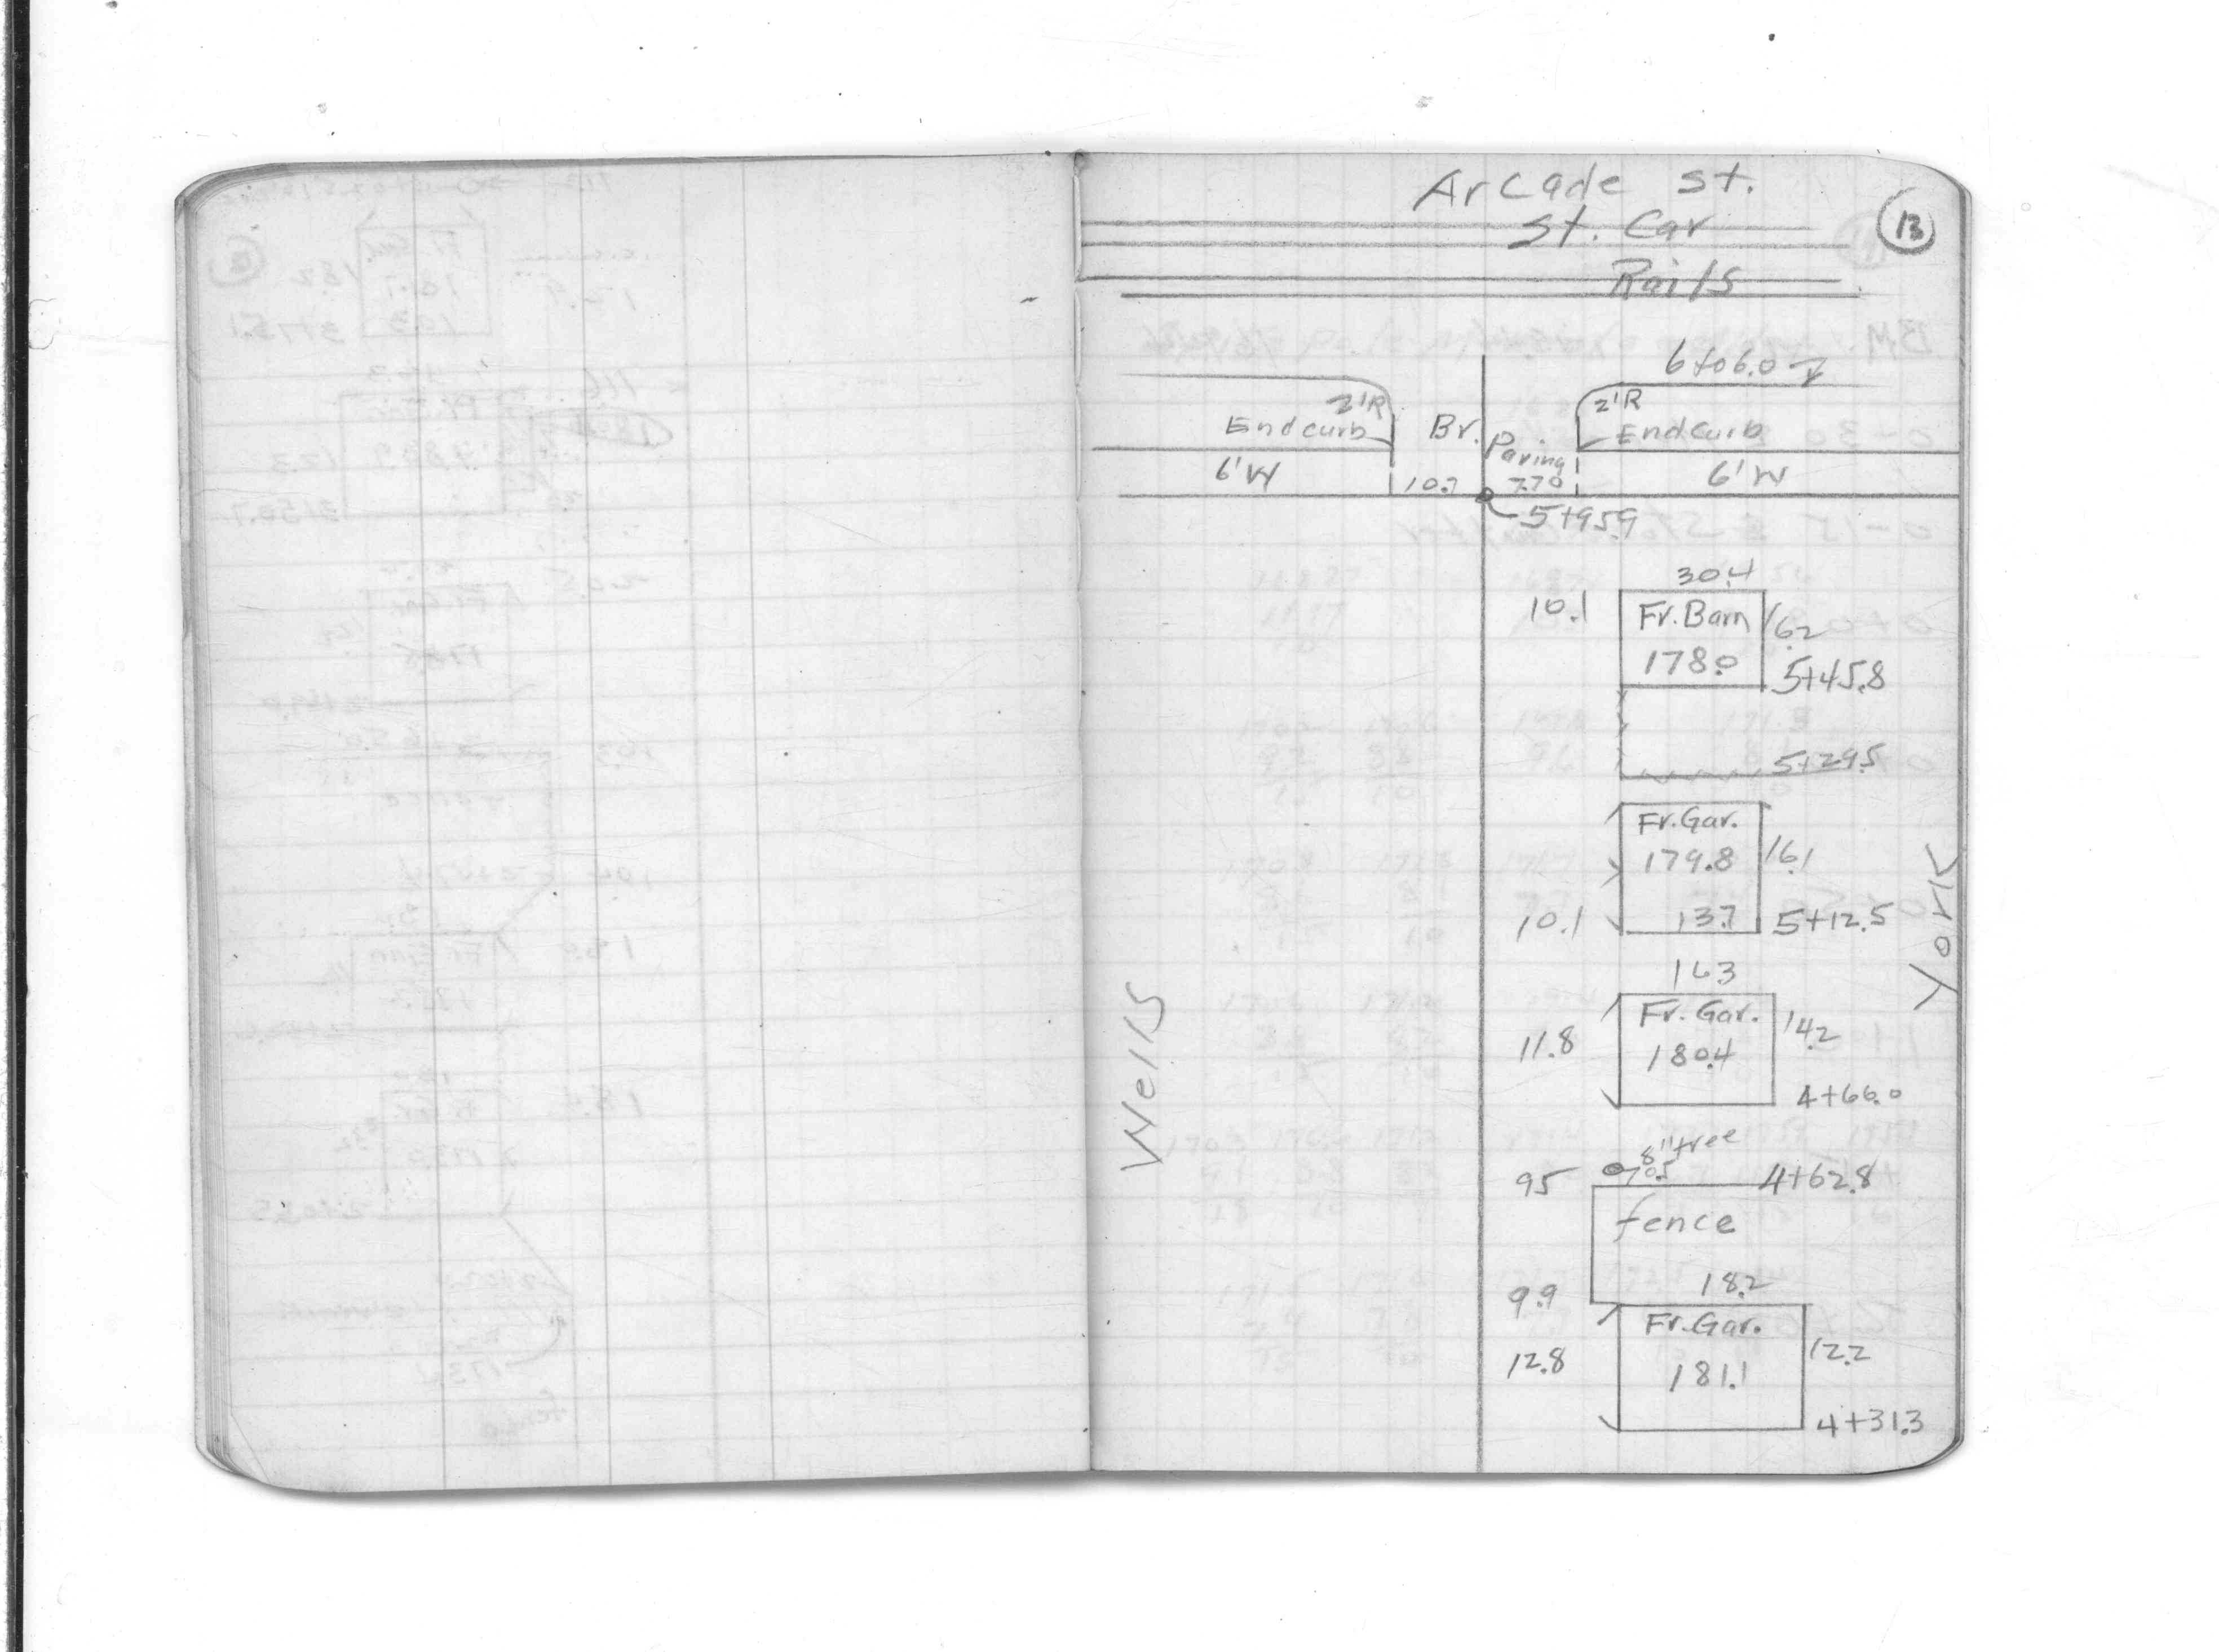 Arcade St.
St. Car
13
Rails
6+06.0
2'R
2'R
End curb
Br.
Paving
End curb
6'W
10.7
7.70
6'W
5+95.9
30.4
10.1
Fr. Barn
16.2
178.0
5+45.8
5+29.5
Fr. Gar.
179.8
16.1
10.1
13.7
5+12.5
York
16.3
Fr. Gar.
14.2
11.8
180.4
4+66.0
Wells
8" tree
9.5
4+62.8
fence
9.9
18.2
Fr. Gar.
12.8
181.1
12.2
4+31.3